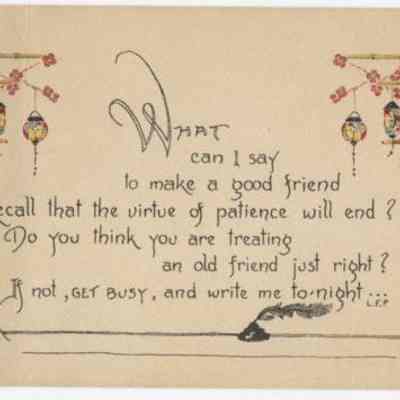 WHAT
can I say
to make a good friend
ecall that the virtue of patience will end?
Do you think you are treating
an old friend just right?
If not, GET BUSY, and write me to-night...